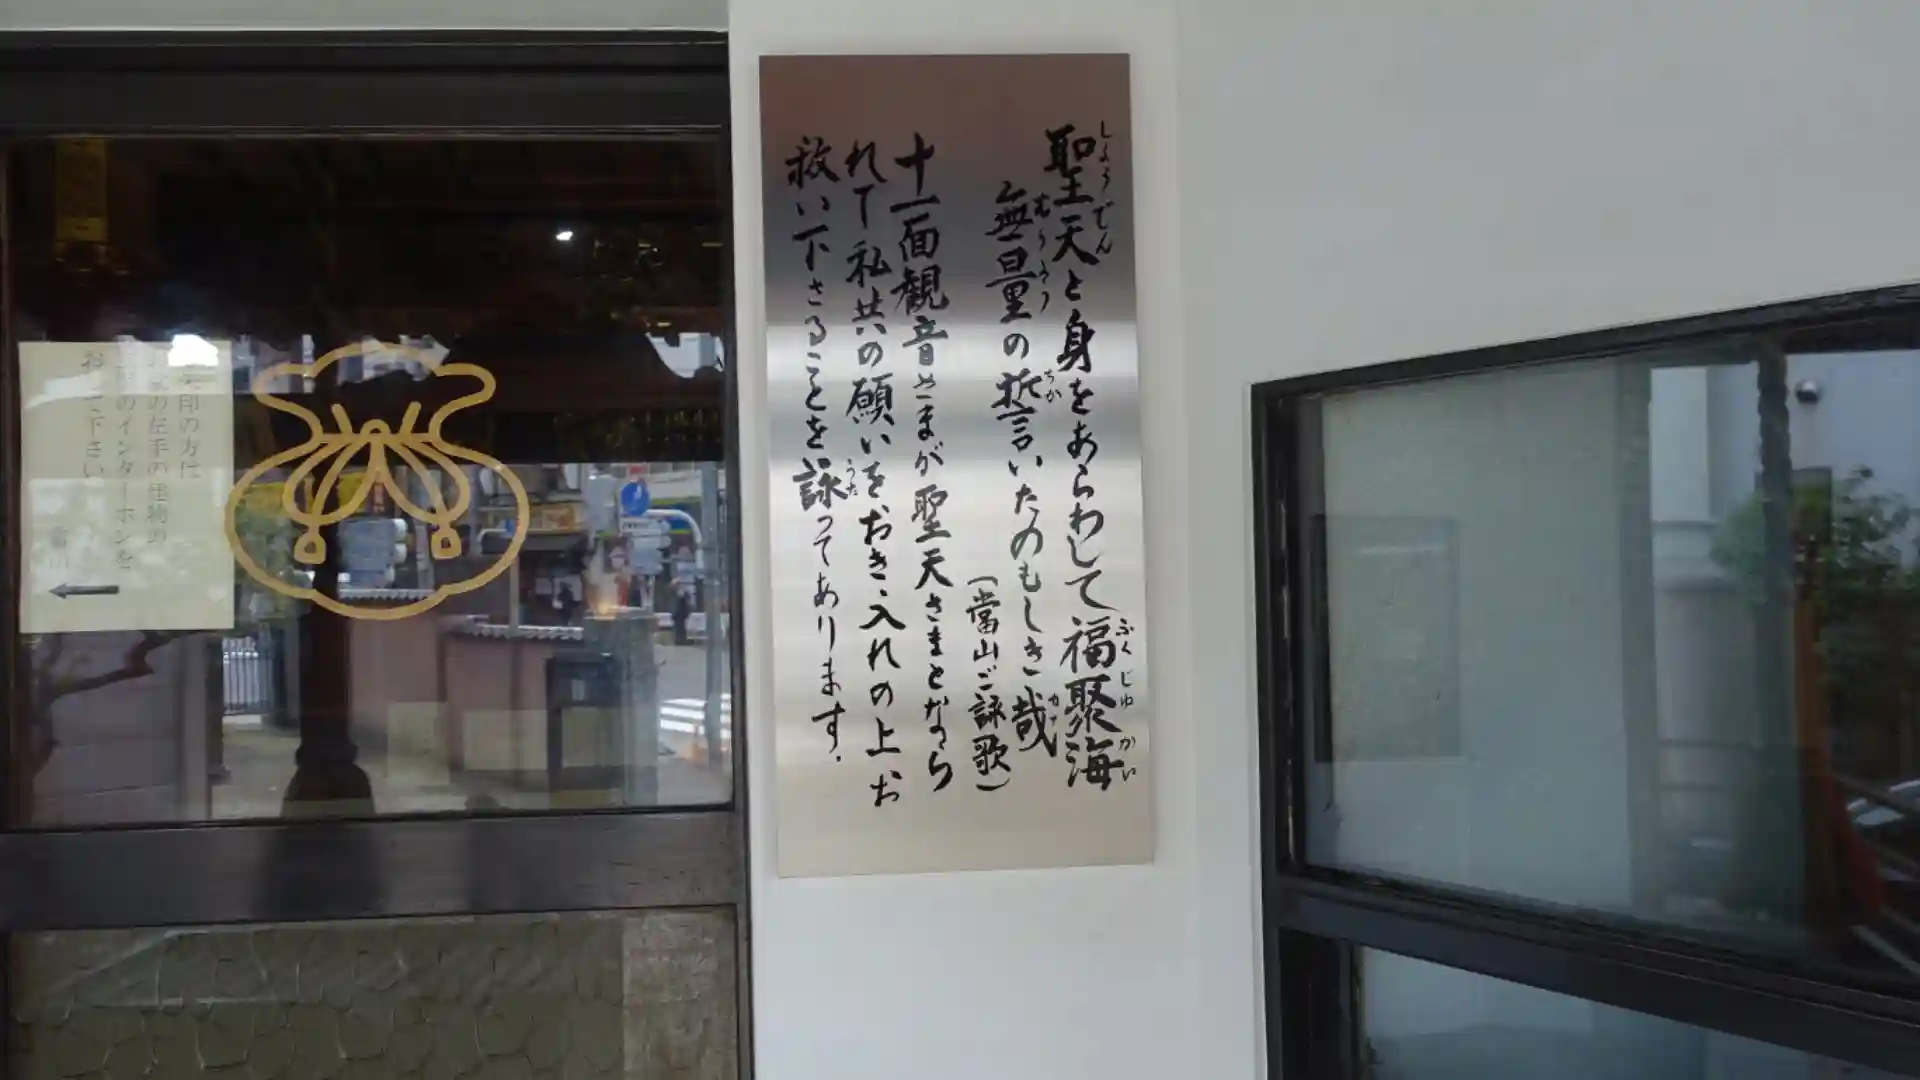 聖天と身をあらわして福聚海
しょうでん
ふくじゅかい
無量の誓いたのもしき哉
むりょう
ちか
かな
(當山ご詠歌)
十一面観音さまが聖天さまとなら
れて私共の願いをおきゝ入れの上お
救い下さることを詠ってあります.
うた
印の方は
の左手の建物の
のインターホンを
下さい